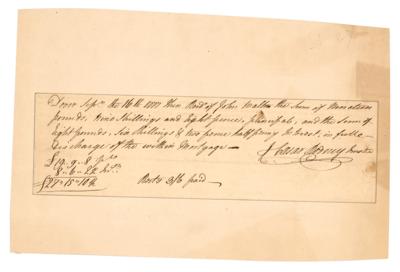 Dover Sepr. the 16th 1777 then Recd. of John Walker the Sum of Nineteen
pounds, Nine Shillings and Eight pence, principal, and the Sum of
Eight pounds, Six Shillings & two pence half penny Interest, in full
discharge of the within Mortgage
£19-9-8
8-6-2½
£27-15-10½
Costs 3/6 paid
Caesar Rodney